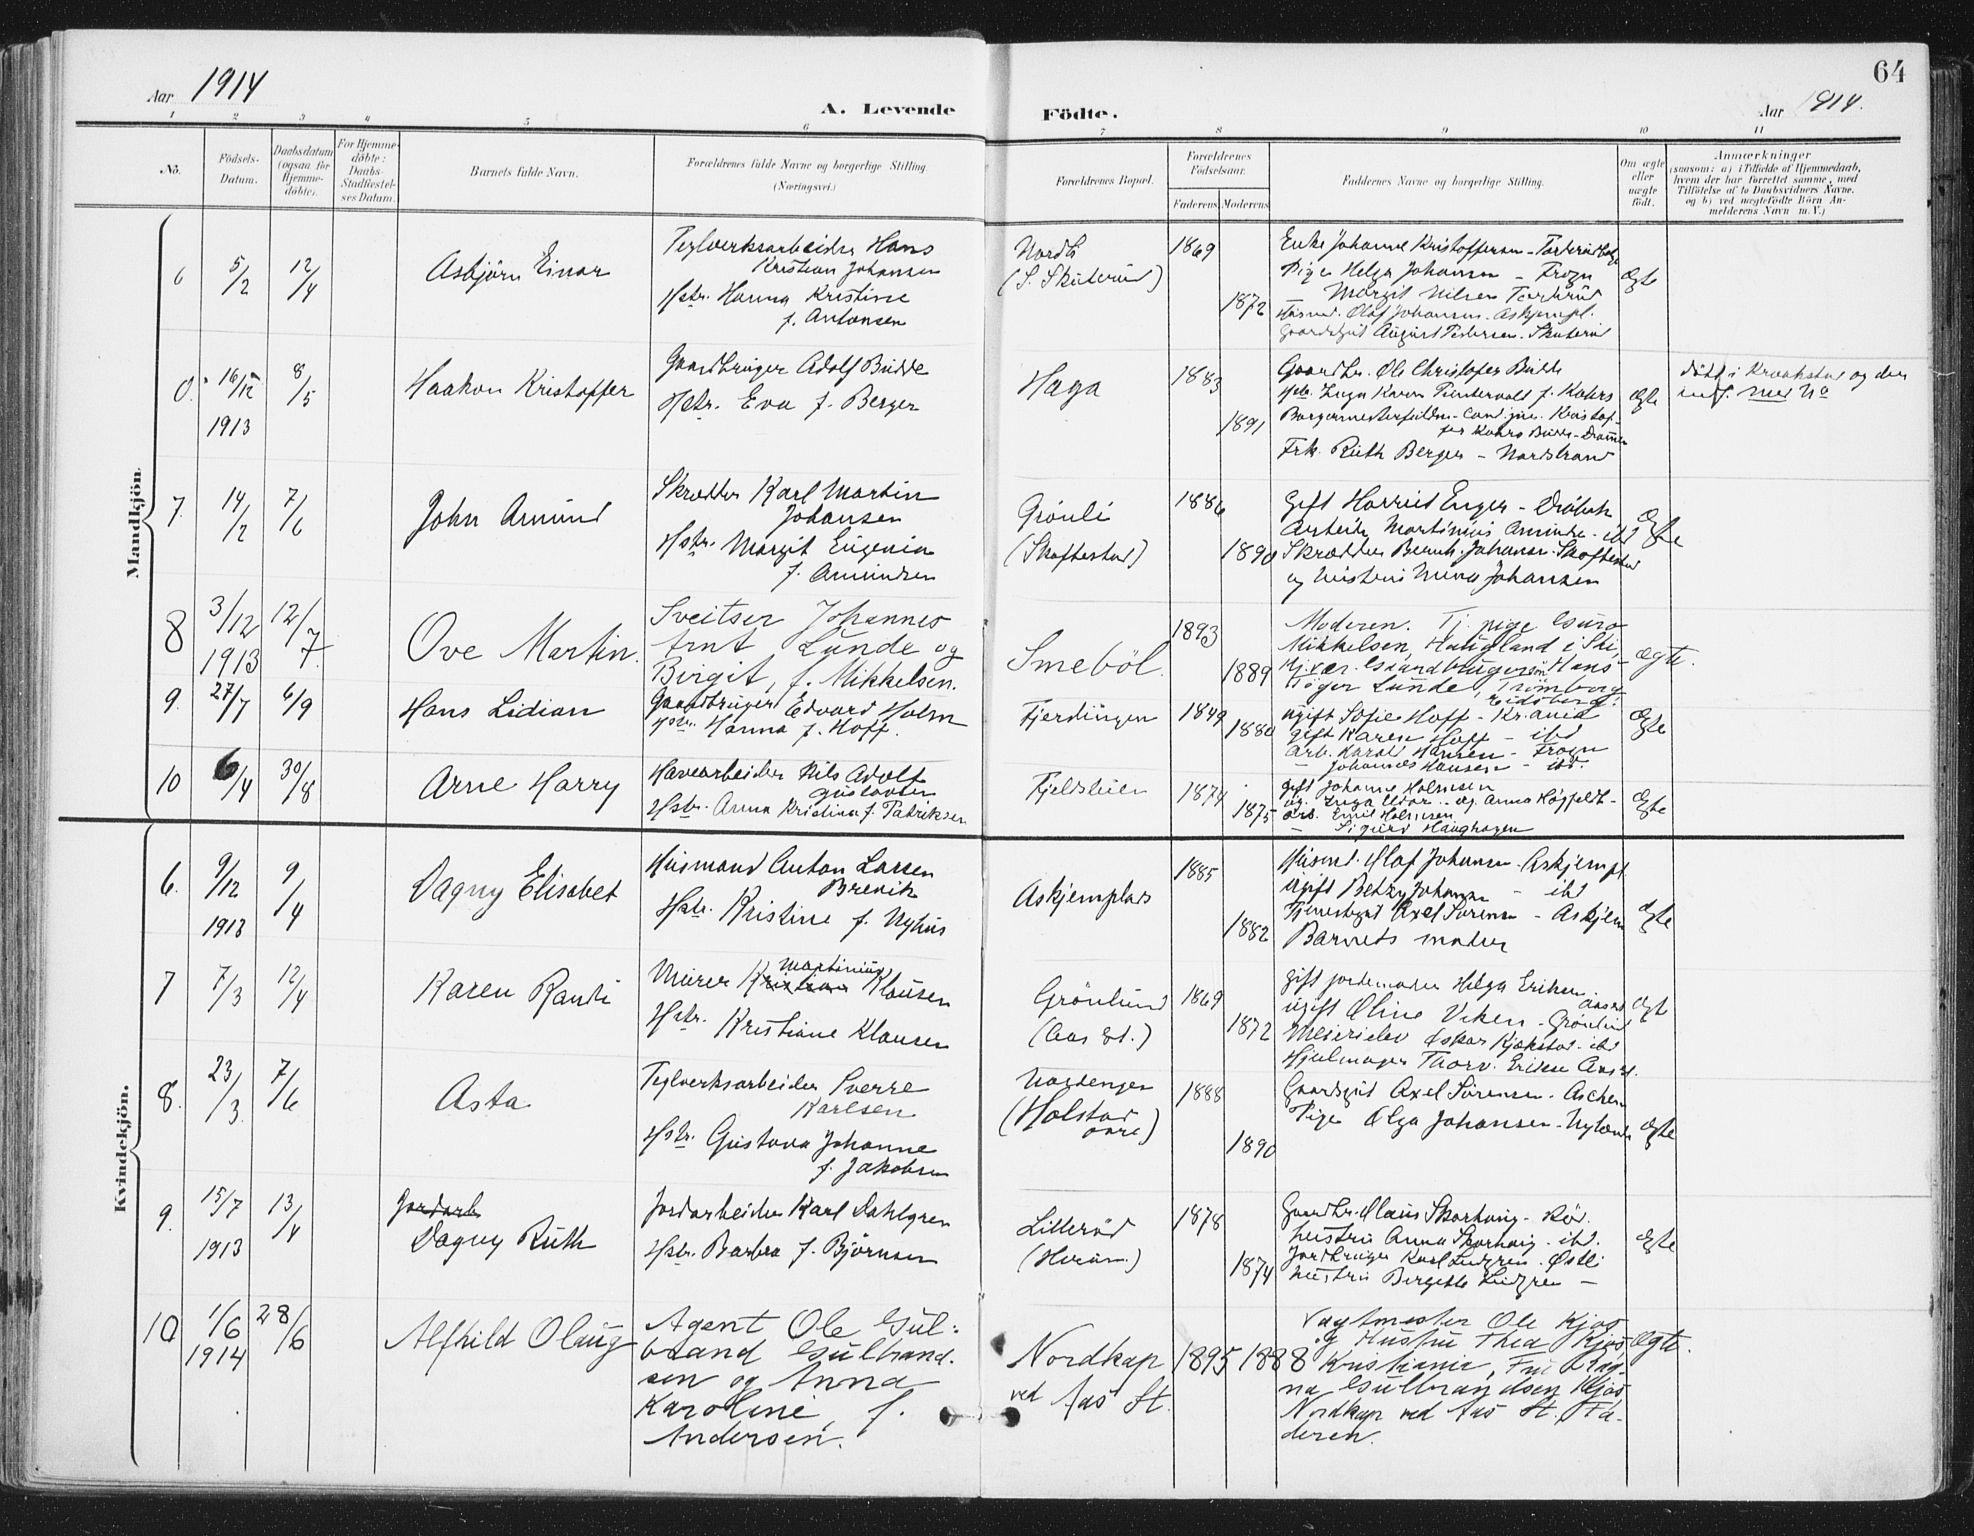 Aar 1914
A. Levende
Födte.
Aar 1914.
64
1 2 3 4 5 6 7 8 9 10 11
No.
Födsels-Datum.
Daabsdatum (ogsaa for Hjemme-döbte).
For Hjemme-döbte: Daabs-Stadfæstel-ses Datum.
Barnets fulde Navn.
Forældrenes fulde Navne og borgerlige Stilling (Næringsvei.)
Forældrenes Bopæl.
Forældrenes Födselsaar.
Faderens Moderens
Faddernes Navne og borgerlige Stilling.
Om ægte eller uægte födt.
Anmærkninger
(saasom: a) i Tilfælde af Hjemmedaab, hvem der har forrettet samme, med Tilföielse af to Daabsvidners Navne. og b) ved uægtefödte Börn An-melderens Navn m. V.)
Mandkjön.
6 5/2 12/4 Asbjörn Einar
Teglverksarbeider Hans
Kristian Johansen
Hstr. Hanna Kristine
f. Antonsen
Nordli
(S. Skuterud)
1869
1872
Enke Johanne Kristoffersen
Pige Helga Johansen - Frogn
Margit Nilsen
Husmd. Olaf Johansen - Askjempl.
Gaardsgut August Pedersen - Skuterud
Ægte
0. 16/12 1913 8/5 Haakon Kristoffer
Gaardbruger Adolf Budde
Hstr. Eva f. Berger
Haga
1883
1891
Gaardbr. Ole Christofer Budde
Hstr. Inga Karen f. Kahrs
cand. jur. Kristof-
fer Kahrs Budde - Drammen
Frk. Ruth Berger - Nordstrand
Ægte
døbt i Kraakstad og der
indf. med No
7. 14/2 7/6 John Amund
Skrædder Karl Martin
Johansen
Hstr. Margit Eugenia
f. Amundsen
Grönli
(Skoftestad)
1886
1890
Gift Harriet Enger - Dröbak
Arbeider Martinius Amunds - ibd
Skrædder Bernh. Johansen - Skoftestad
og hustru Mina Johansen
Ægte
8 3/12 1913 12/7. Ove Martin.
Sveitser Johannes
Arnt Lunde og
Birgit, f. Mikkelsen.
Smeböl.
1893
1889
Moderen. Tj. pige Guro
Mikkelsen, Haugland i Ski,
Gaardbrugersön Hans
Lunde, Trömborg
Eidsberg.
Ægte.
9. 27/7 6/9 Hans Lidian
Gaardbruger Edvard Holm
Hstr. Hanna f. Hoff.
Fjerdingen
1849
1880
Ugift Sofie Hoff - Kr.ania
gift Karen Hoff - ibd
arb. Harald Hansen - Frogn
- Johannes Hansen - ibd.
Ægte
10 6/4 30/8 Arne Harry
Havearbeider Nils Adolf
Gustavsen
Hstr. Anna Kristina f. Patriksen
Fjeldstuen
1874
1875
gift Johanne Holmsen
ug. Inga - ug. Anna Høgfeldt -
arb. Emil Holmsen
- Sigurd Haughagen
Ægte
Kvindekjön.
6. 9/12 1913 9/4 Dagny Elisabet
Husmand Anton Larsen
Brevik
Hstr. Kristine f. Nyhus
Askjemplads
1885
1882
Husmd. Olaf Johansen - Askjempl
Ugift Betzy Johansen - ibd
Tjenestegut Axel Sörensen - Askjem
Barnets moder
Ægte
7 7/3 12/4 Karen Randi
Martinius
Murer Kristian Klausen
Hstr. Kristiane Klausen
Grönlund
(Aas St.)
1869
1872
gift jordemoder Helga Eriksen
Aas st
Ugift Oline Viken - Grönlund
Meierielev Oskar Kjøkstad - ibd
Hjulmager Thorv. Eriksen Aas st.
Ægte
8. 23/3. 7/6 Asta
Teglverksarbeider Sverre
Karlsen
Hstr. Gustava Johanne
f. Jakobsen
Nordengen
(Holstad
övre)
1888
1890
Gaardsgut Axel Sörensen - Aschem
Pige Olga Johansen - Nylænde
Ægte
9. 15/7 1913 13/4 Jordarb
Dagny Ruth
Jordarbeider Karl Dahlgren
Hstr. Barbra f. Björnsen
Lilleröd
(Herum.)
1878
1874
Gaardbr. Olaus Skorhaug - Röd.
hustru Anna Skorhaug - ibd.
Jordbruger Karl Lindgren - Östli
hustru Bergitte Lindgren -
Ægte
10 1/6 1914 28/6 Alfhild Olaug
Agent Ole Gul-
brand Gulbrand-
sen og Anna
Karoline, f.
Andersen.
Nordkap
ved Aas St.
1895 1888
Vagtmester Ole Kjos
og Hustru Thea Kjos,
Kristiania, Frk Dag-
na Gulbrandsen Kjos
Nordkap ved Aas St. Fa-
deren.
Ægte.